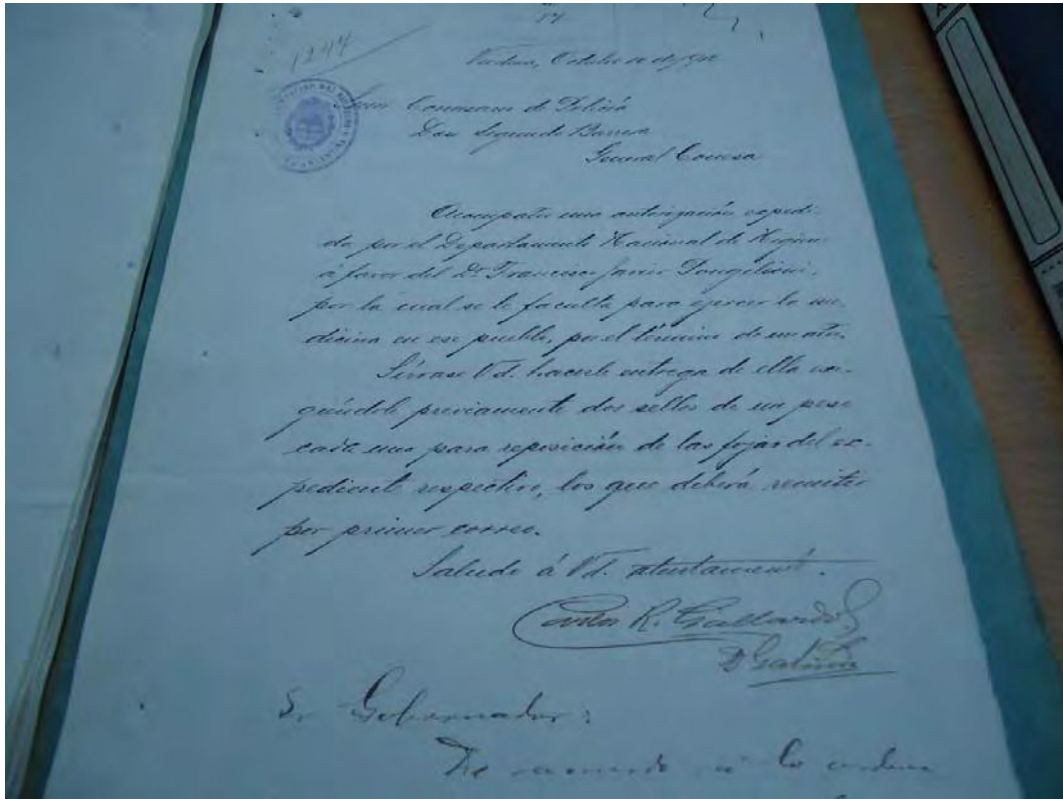 1244
Viedma, Octubre
Señor Comisario de Policía
Don Segundo Barrera
General Conesa
Acompaño una autorización expedi-
da por el Departamento Nacional de Higiene
á favor del Dr. Francisco Javier
por la cual se le faculta para ejercer la me-
dicina en ese pueblo, por el término de un año.
Sírvase Vd. hacerle entrega de ella exi-
giéndole previamente dos sellos de un peso
cada uno para reposición de las fojas del ex-
pediente respectivo, los que deberá remitir
por primer correo.
Saludo á Vd. atentamente.
Carlos R. Gallardo
Sr Gobernador:
De acuerdo á lo